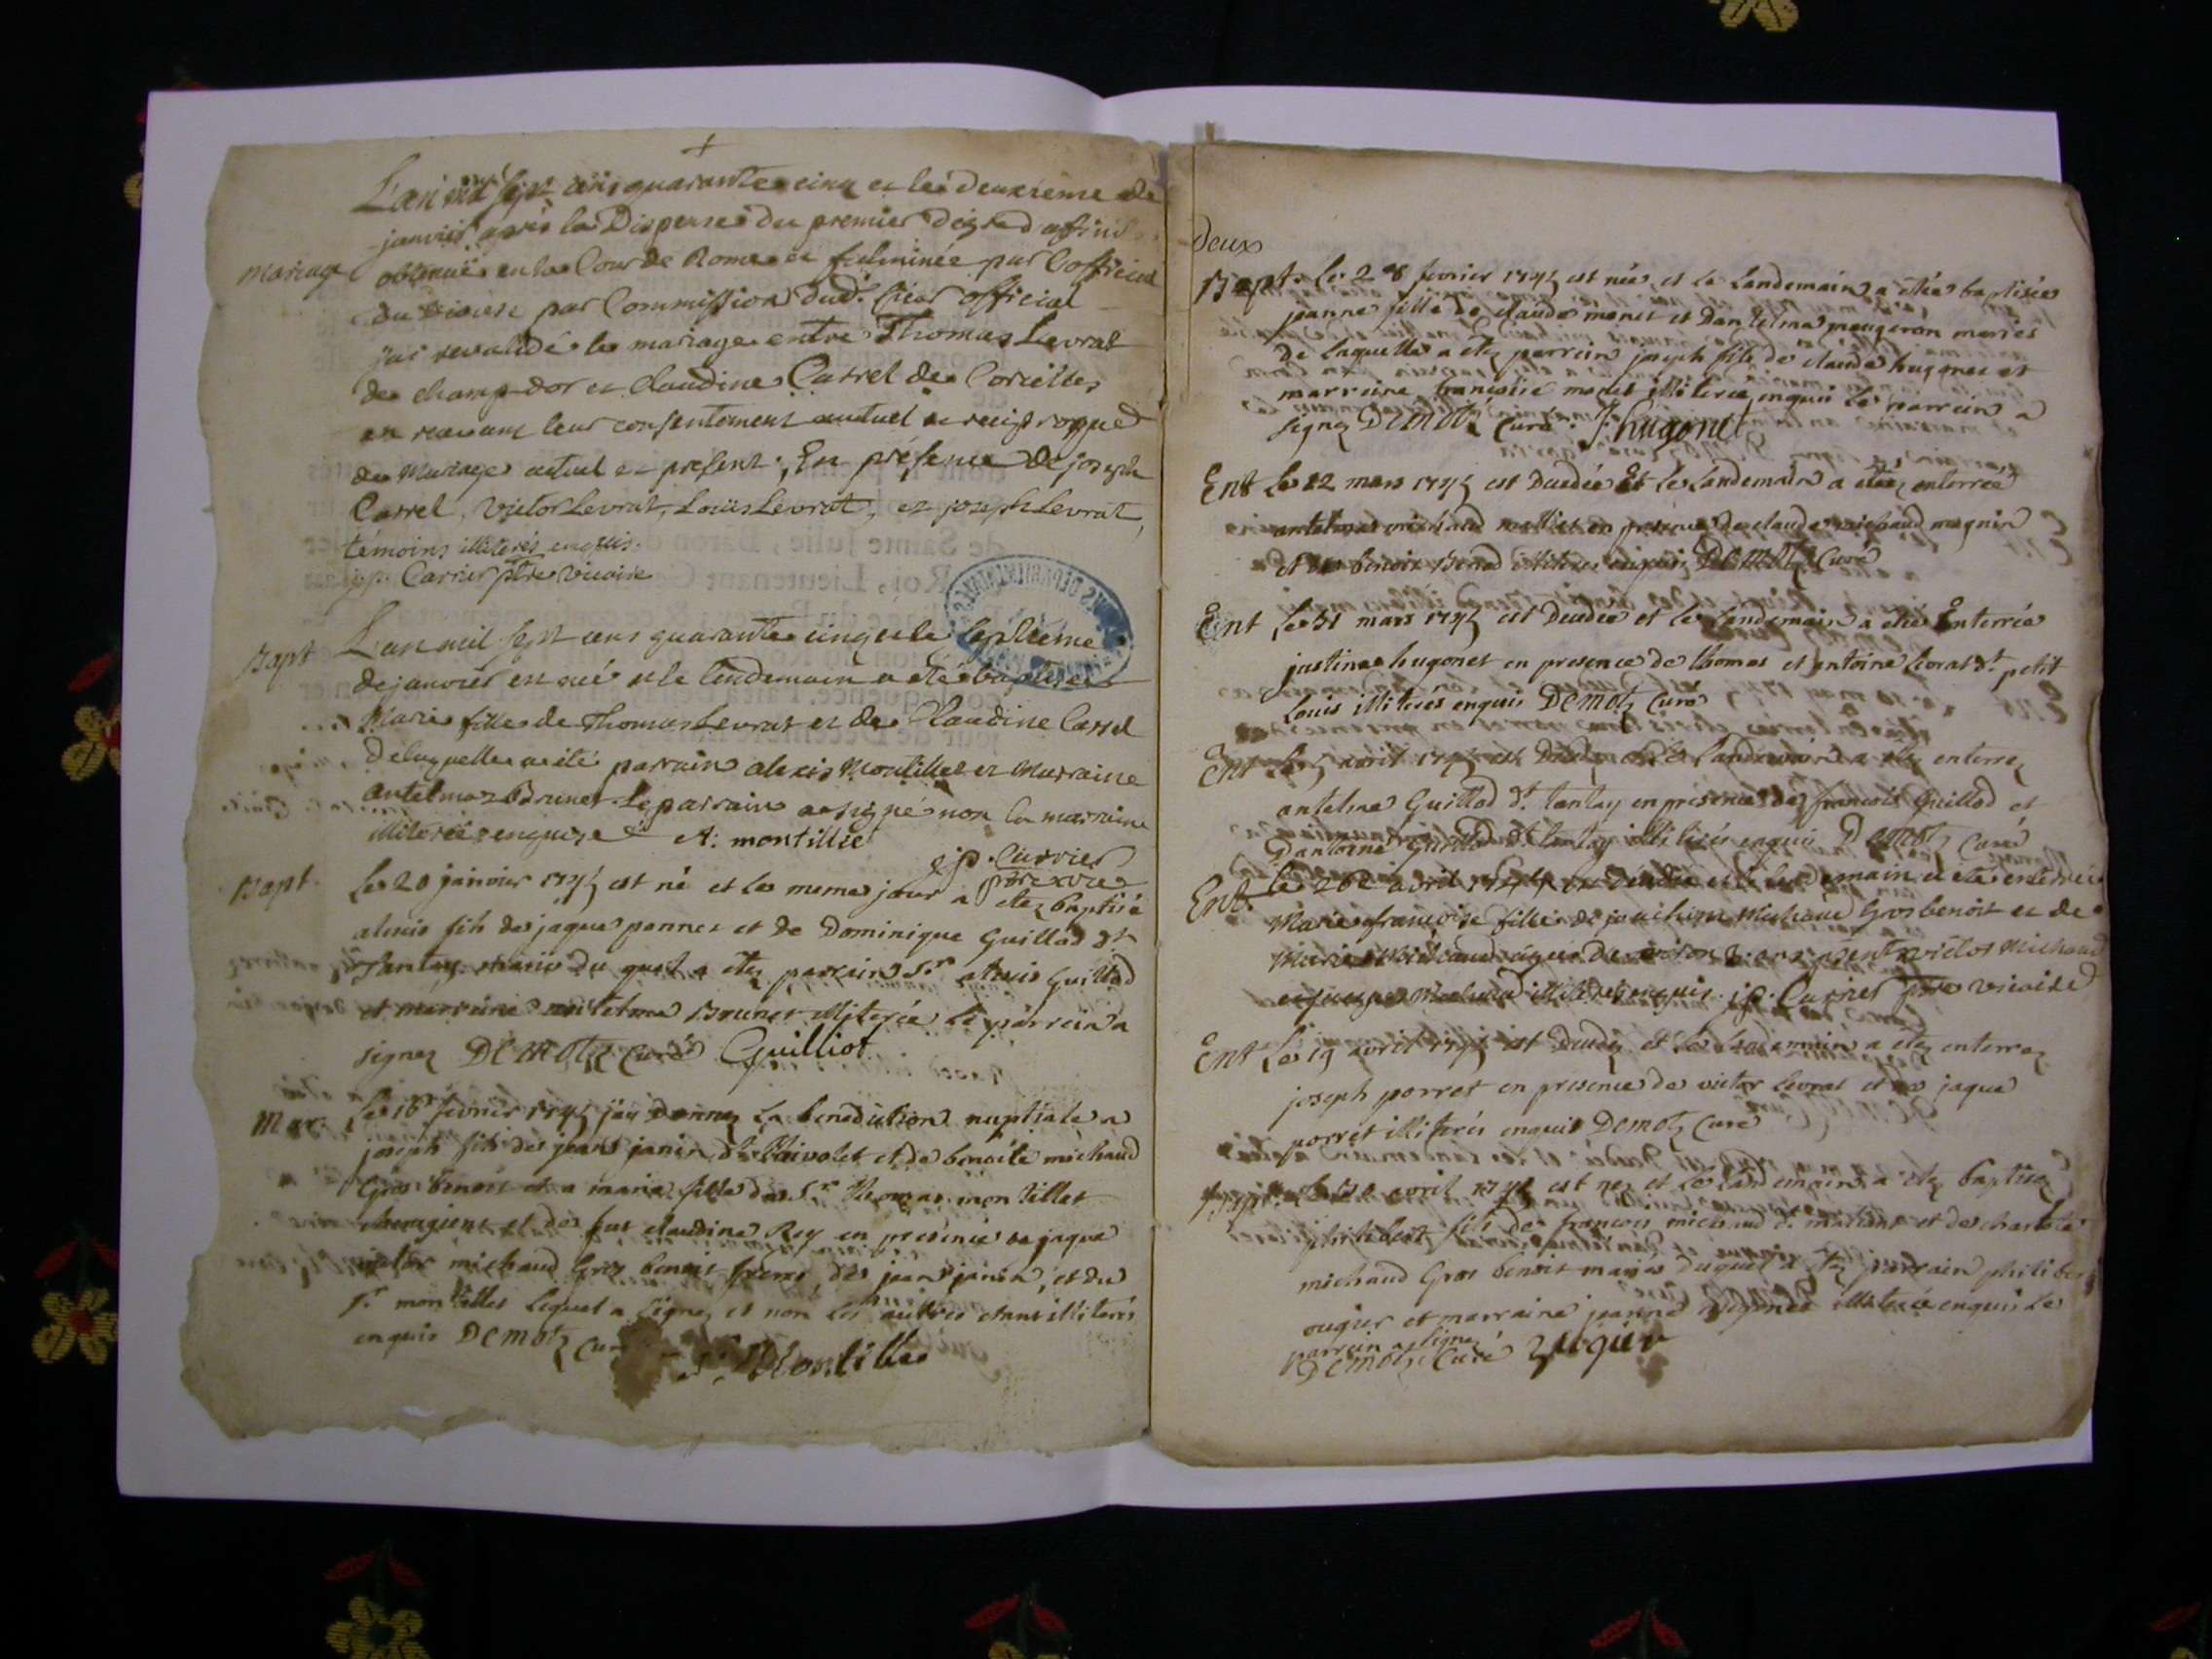 +
L'an mil sept cens quarante cinq et le deuxième de
janvier après la Dispense du premier degré d'affinité
mariage obtenuë en la Cour de Rome et fulminée par l'official
du Diocese par Commission dud. sieur official
j'ai revalidé le mariage entre Thomas Levrat
de champ-dor et Claudine Carrel de Corcelles
en recevant leur consentement mutuel et reciproque
du Mariage actuel et présent. En présence de joseph
Carrel, victor Levrat, Loüis Levrat, et joseph Levrat,
témoins illiterés enquis.
j.p. Carrier ptre vicaire
Bapt L'an mil sept cens quarante cinq et le septieme
de janvier est née et le lendemain a été baptisée
Marie fille de Thomas Levrat et de Claudine Carrel
de laquelle a été parrain alexis Montillet et Marraine
antelmaz Brunet. Le parrain a signé non la marraine
illiterée enquise A: montillet
j.p. Carrier
ptre vic
Bapt. Le 20 janvier 1745 est né et le meme jour a etez baptisé
alexis fils de jaque ponnet et de Dominique Guillod dt
Tantay mariés du quel a etez parrain Sr. alexis Guillod
et marraine antelma Brunet illiterée le parrein a
signez DEMotz Curé Guilliot
Mar. Le 16e fevrier 1745 j'ay Donnez La benediction nuptiale a
joseph fils de jean janin dt Raivolet et de benoite michaud
Gros benoit et a maria fille du Sr. thomas montillet
chirugient et de fue claudine Rey en presence de jaque
victor michaud Gros benoit freres, de jean janin, et du
Sr. montillet lequel a signez et non les autres etant illiterés
enquis DEMotz Curé
Montillet
deux
Bapt. Le 28 fevrier 1745 est née et le landemain a etée baptisée
jeanne fille de claude monet et Dantelma mougeron mariés
de laquelle a etez parrein joseph fils de claude hugonet et
marreine françoise monet illiterée enquis le parrein a
signez DEMotz Curé J: hugonet
Ent Le 22 mars 1745 est Decedée Et le landemain a etez enterrée
antelmaz michaud malliet en presence de claude michaud magnin
et de benoit Benod illiteres enquis DEMotz Curé
Ent Le 31 mars 1745 est Decedée et le landemain a etee Enterrée
justine hugonet en presence de thomas et antoine Levrat dt. petit
Louis illiteres enquis DEMotz Curé
Ent Le 5 avril 1745 est Decedez et le landemain a etez enterrez
antelme Guillod dt. tantay en presence de françois Guillod et
Dantoine Guillod dt. tantay illiterés enquis DEMotz Curé
Ent. Le 26e avril 1745 est décédée et le lendemain a été enterrée
Marie françoise fille de joachim Michaud Gros benoit et de
Marie Michaud agée d'environ 2 ans présent victor Michaud
et jacques Michaud illiterés enquis. j.p. Carrier ptre vicaire
Ent Le 19 avril 1745 est Decedez et le landemain a etez enterrez
joseph porret en presence de victor Levrat et de jaque
porret illiterés enquis DEMotz Curé
Bapt. Le 30 avril 1745 est nez et le landemain a etez baptisez
philibert fils de françois michaud dt. marians et de charlote
michaud Gros benoit mariés duquel a etez parrain philibert
ougier et marraine jeanne hugonet illiterée enquis le
parrein a signez
DEMotz Curé ougier